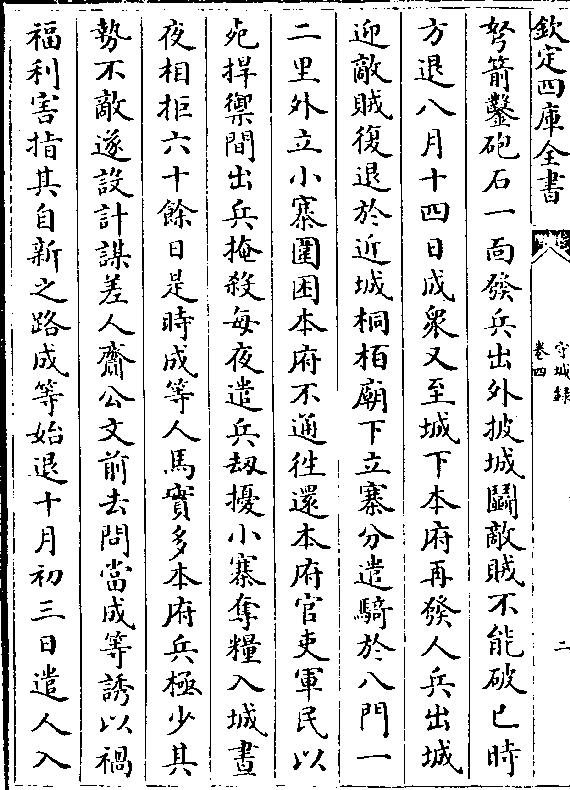 欽定四庫全書
守城錄
卷四
二
弩箭鑿砲石一面發兵出外披城鬬敵賊不能破巳時
方退八月十四日成衆又至城下本府再發人兵出城
迎敵賊復退於近城桐栢廟下立寨分遣騎於八門一
二里外立小寨圍困本府不通徃還本府官吏軍民以
死捍禦間出兵掩殺每夜遣兵刼擾小寨奪糧入城晝
夜相拒六十餘日是時成等人馬實多本府兵極少其
勢不敵遂設計謀差人齎公文前去問當成等誘以禍
福利害指其自新之路成等始退十月初三日遣人入